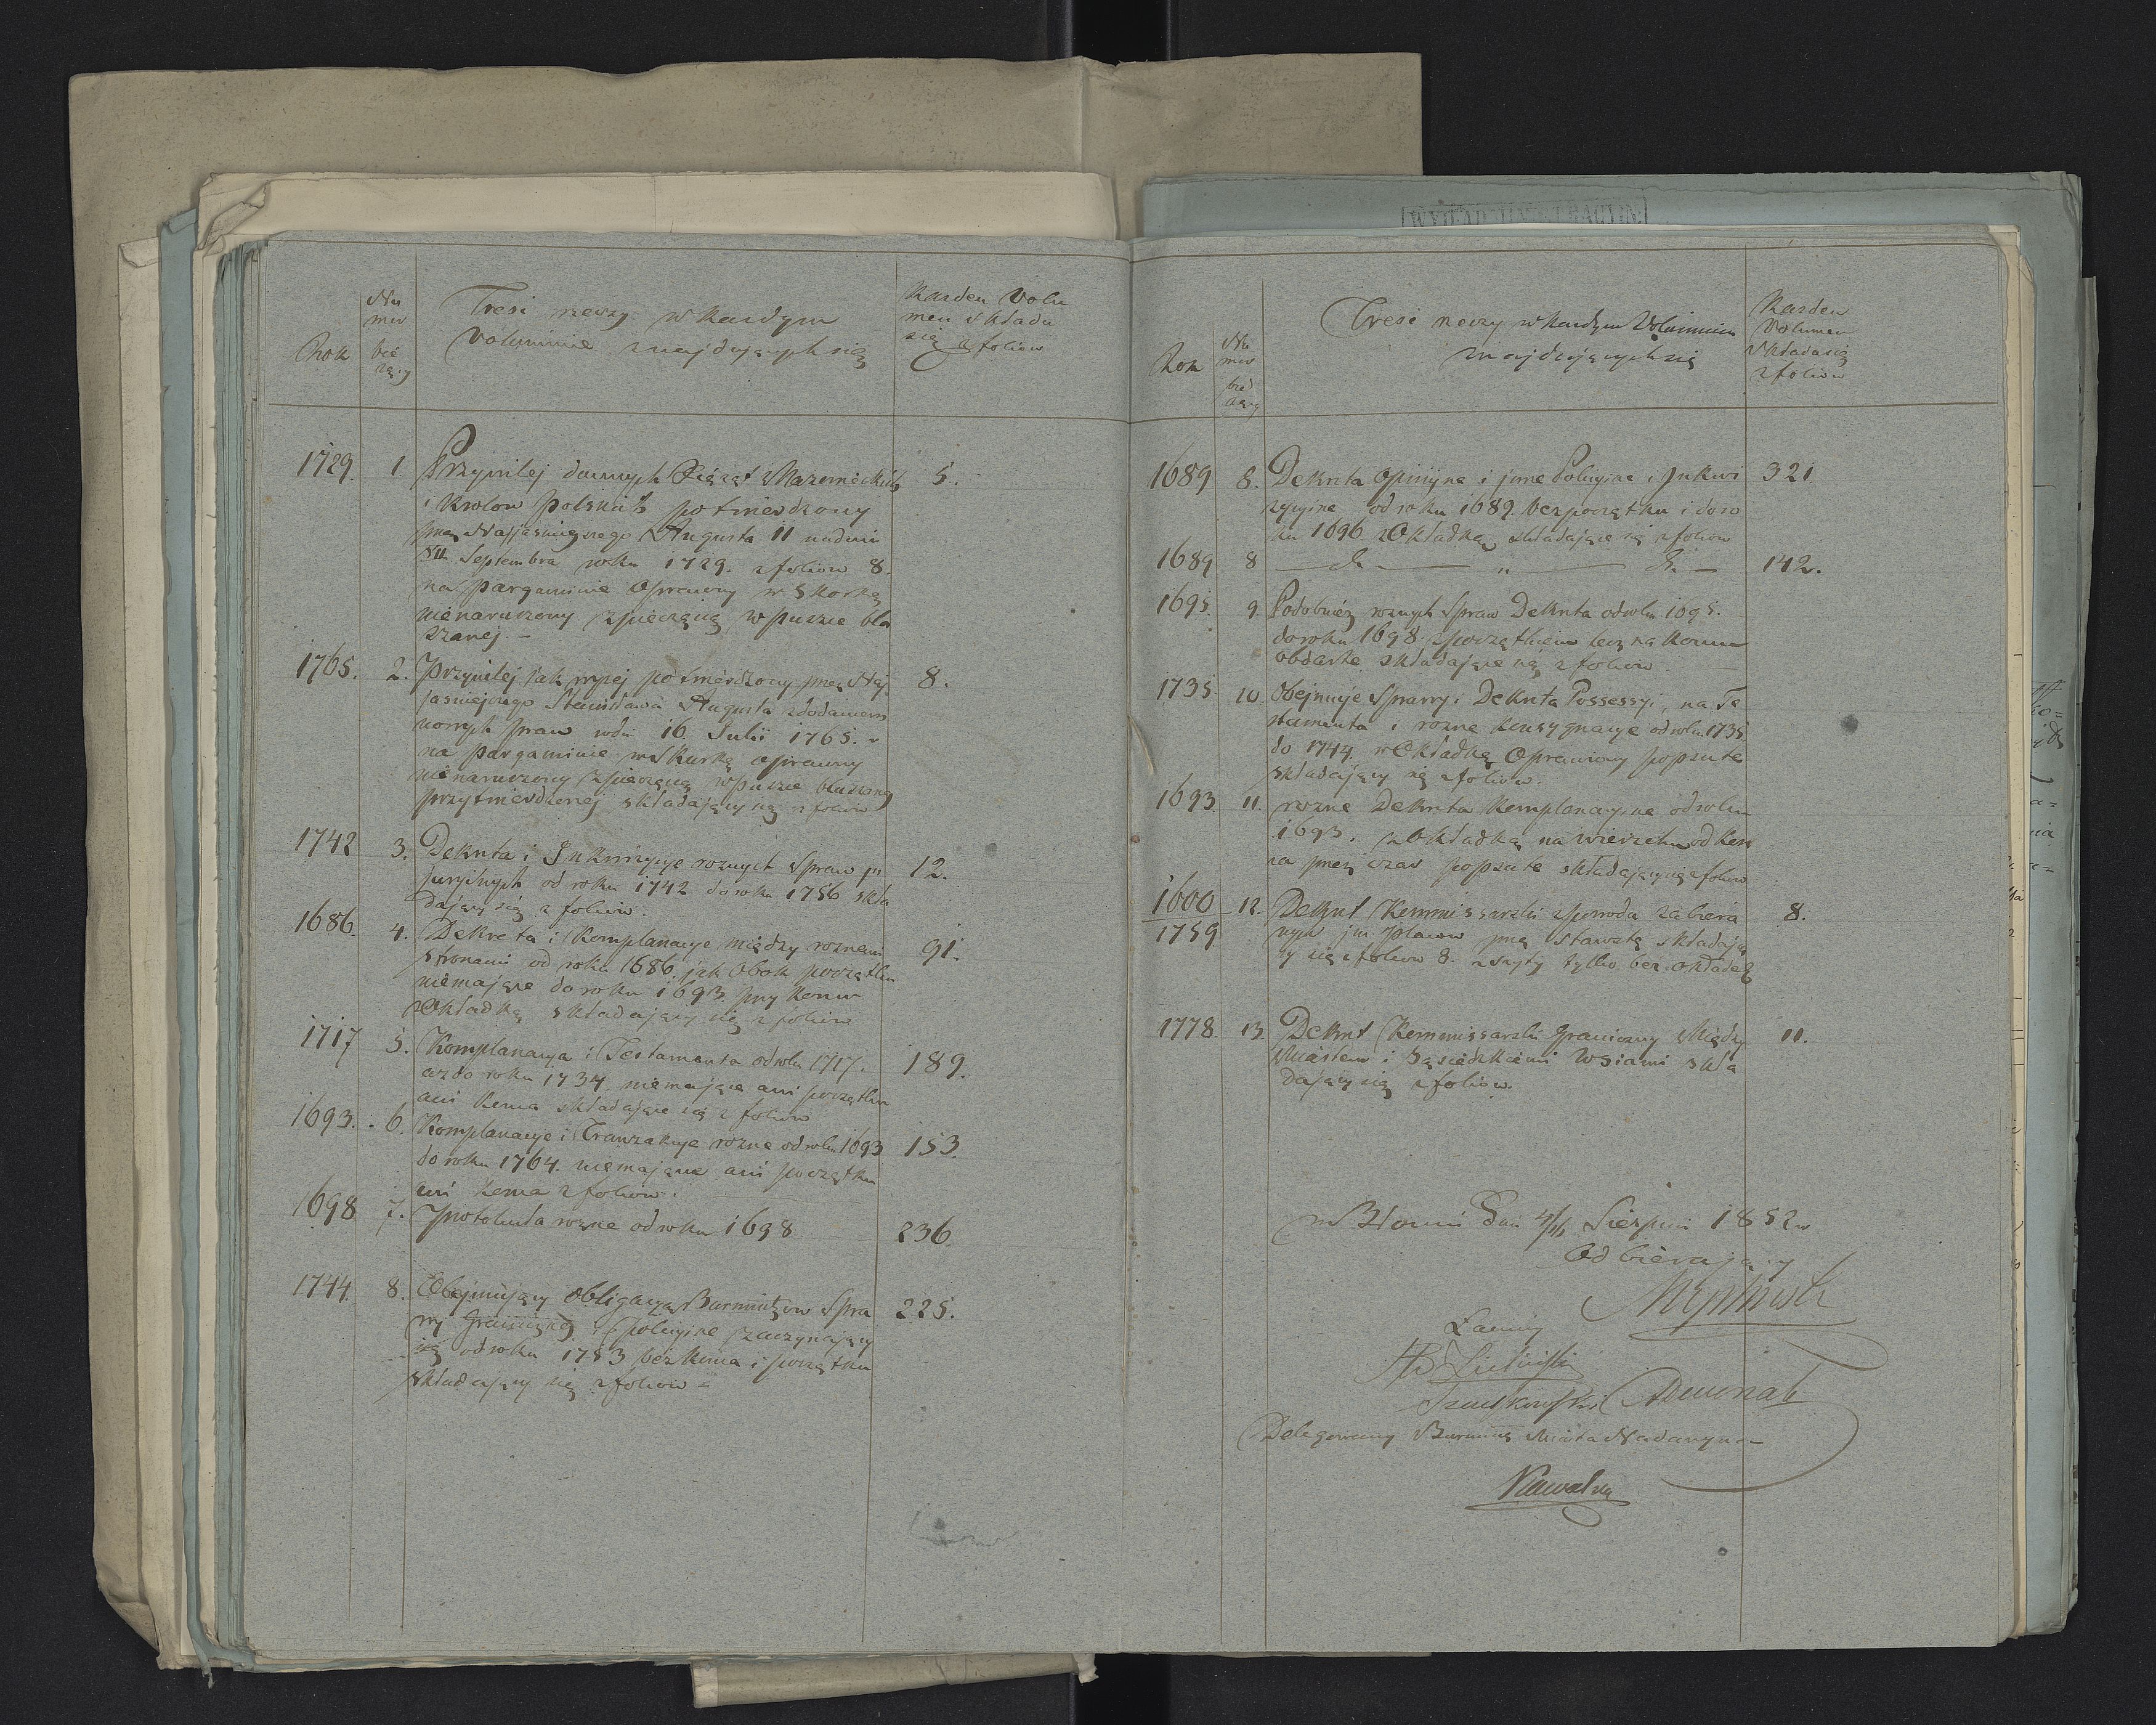 Rok
Nu
mer
bie
żący
Tresć rzeczy w kazdym
Voluminie znajdujących się
Kazden Volu
men składa
się z foliów
1729. 1 Przywilej dawnych Xiążąt Mazowieckich 5.
i Krolow Polskich potwierdzony
przez Najjasniejszego Augusta II na dniu
Septembra roku 1729. z foliow 8.
na pargaminie oprawny w skorkę
nienaruszony z pieczęcią w puszce bla
szanej. —
1765. 2. Przywilej jak wyżej potwierdzony przez Naj 8.
jasniejszego Stanisława Augusta z dodaniem
nowych praw w dn 16 Julii 1765. r
na pargaminie w skurkę oprawny
nienaruszony z pieczęcią w puszce blaszanej
przytwierdzonej składający się z foliow
1742 3. Dekreta i Inkwizycye roznych Spraw in 12.
juryinych od roku 1742 do roku 1756 skła
dający się z foliów.
1686. 4. Dekreta i Komplanacye między roznemi 91.
stronami od roku 1686. jak obok początku
niemające do roku 1693. przy koncu
z Okładką składający się z foliow
1717 5. Komplanacya i Testamenta od roku 1717. 189.
az do roku 1734 niemające ani początku
ani konca składające się z foliow
1693. 6. Komplanacye i Tranzakcye rozne od roku 1693 153.
do roku 1764. niemające ani początku
ani konca z foliow.
1698. 7. Protokuła rozne od roku 1698 236.
1744. 8. Obejmujący Obligacya Burmistrzow Spra 225.
wy Graniczne i Policyine zaczynający
się od roku 1753 bez konca i początku
składający się z foliow —
Rok
Nu
mer
bież
ący
Tresć rzeczy w kazdym Voluminie
znajdujących się
Kazden
Volumen
składa się
z foliow
1689 8. Dekreta Opinijne i jnne Policyine i Jnkwi 321.
zycyine od roku 1689. bez początku i do ro
ku 1696. z Okładką składające się z foliow
1689 8 — dto — „ — dto — 142.
1695. 9. Podobniez roznych Spraw Dekreta od roku 1695.
do roku 1698. z początkiem lecz na koncu
obdarte składające się z foliow.
1735 10. Obejmuje Sprawy i Dekreta Possessyi, na Te
stamenta i rozne konsygnacye od roku 1735
do 1744. w Okładkę Oprawiony popsute
składający się z foliow.
1693. 11. rozne Dekreta Komplanacyine od roku
1693. z Okładką na wierzchu od kon
ca przez czas popsute składający się z foliow
1600
1759 12. Dekret Kommissarski z powodu zabiera 8.
nych jm. placow przez Starostę składają
cy się z foliow 8. zszyty tylko bez okładek
1778. 13. Dekret Kommissarski Graniczny Między 11.
Miastem i Sąsiedzkiemi Wsiami skła
dający się z foliów.
w Błoniu Dnia 4/16 Sierpnia 1852 r
Odbierający
Delegowany Burmistrz Miasta Nadarzyna